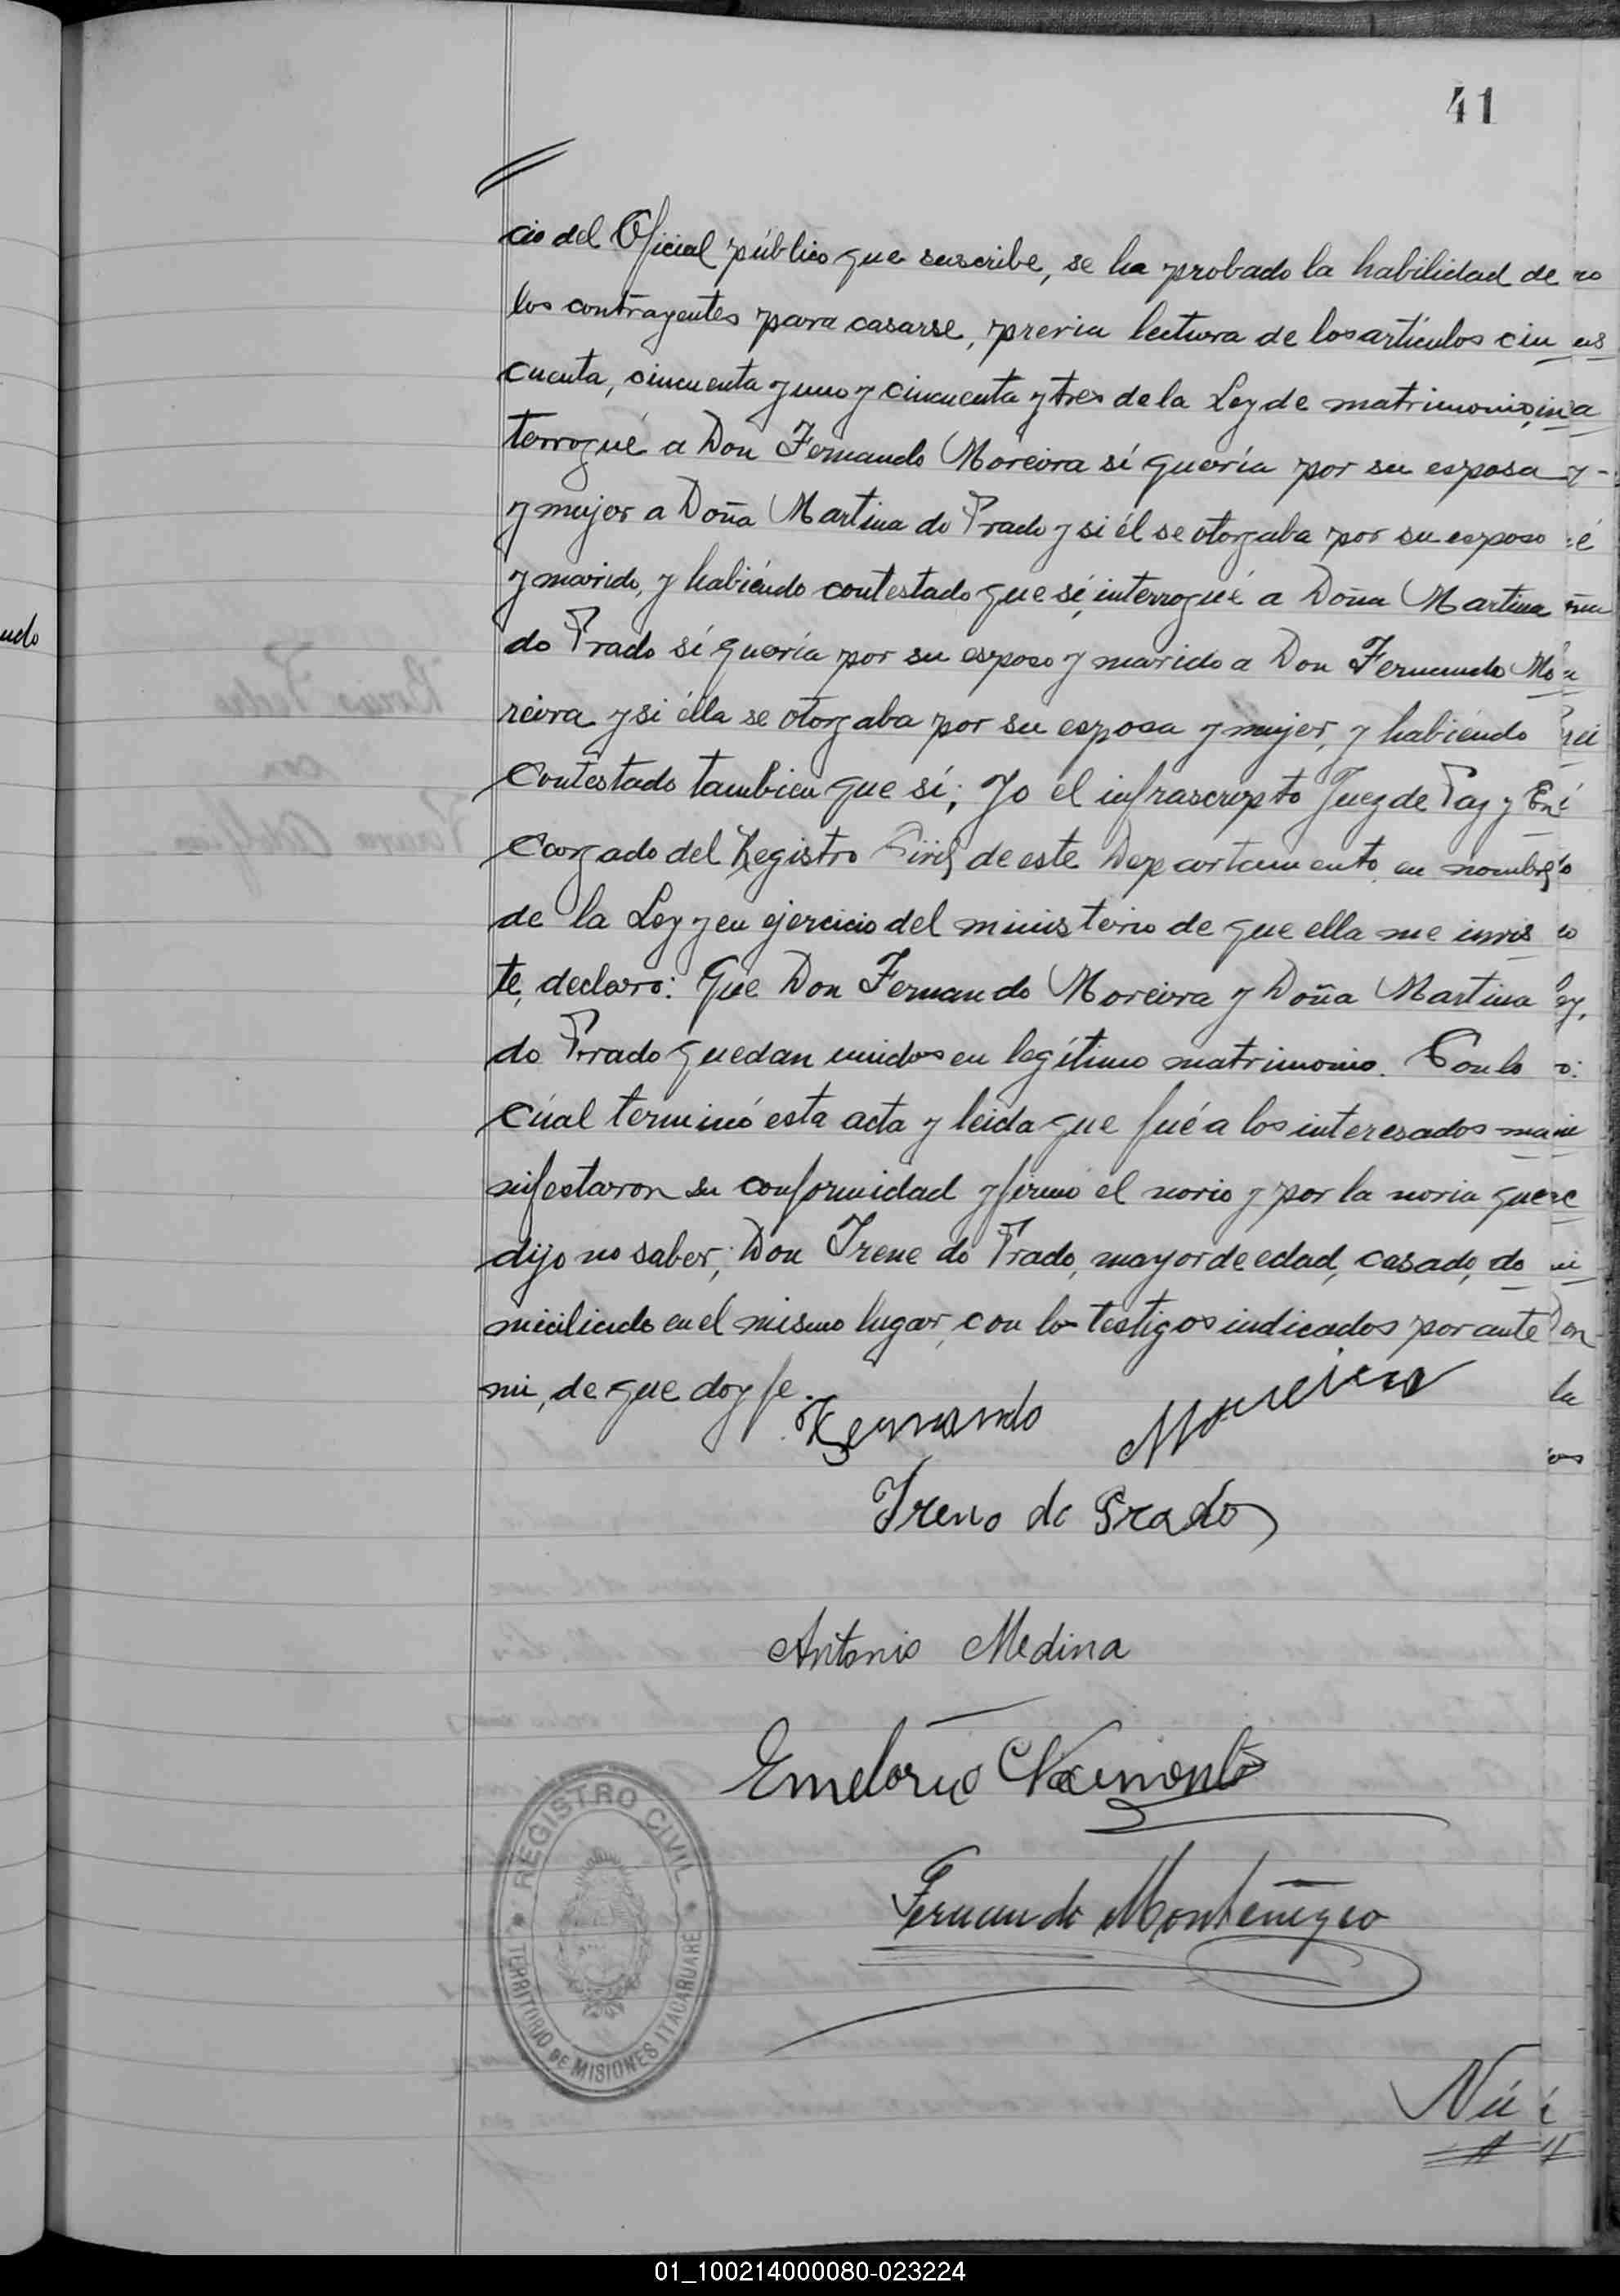 41
cio del Oficial público que suscribe, se ha probado la habilidad de
los contrayentes para casarse, previa lectura de los artículos cin
cuenta, cincuenta y uno y cincuenta y tres de la Ley de matrimonio, in
terrogué a Don Fernando Moreira sí quería por su esposa
y mujer a Doña Martina do Prado y si él se otorgaba por su esposo
y marido, y habiéndo contestado que sí, interrogué a Doña Martina
do Prado sí quería por su esposo y marido a Don Fernando Mo
reira y si élla se otorgaba por su esposa y mujer, y habiéndo
contestado tambien que sí; Yo el infrascripto Juez de Paz y En
cargado del Registro Civil de este Departamento, en nombre
de la Ley y en ejercicio del ministerio de que ella me invis
te, declaro: Que Don Fernando Moreira y Doña Martina
do Prado quedan unidos en legítimo matrimonio. Con lo
cúal terminó esta acta y leida que fué a los interesados ma
nifestaron su conformidad y firmó el novio y por la novia que
dijo no saber; Don Irene do Prado, mayor de edad, casado, do
miciliado en el mismo lugar, con lo testigos indicados por ante
mi, de que doy fe.
Fernando Moreira
Ireno do Prado
Antonio Medina
Fernando Montenegro
REGISTRO CIVIL
TERRITORIO DE MISIONES ITACARUARÉ
Nú
01_100214000080-023224